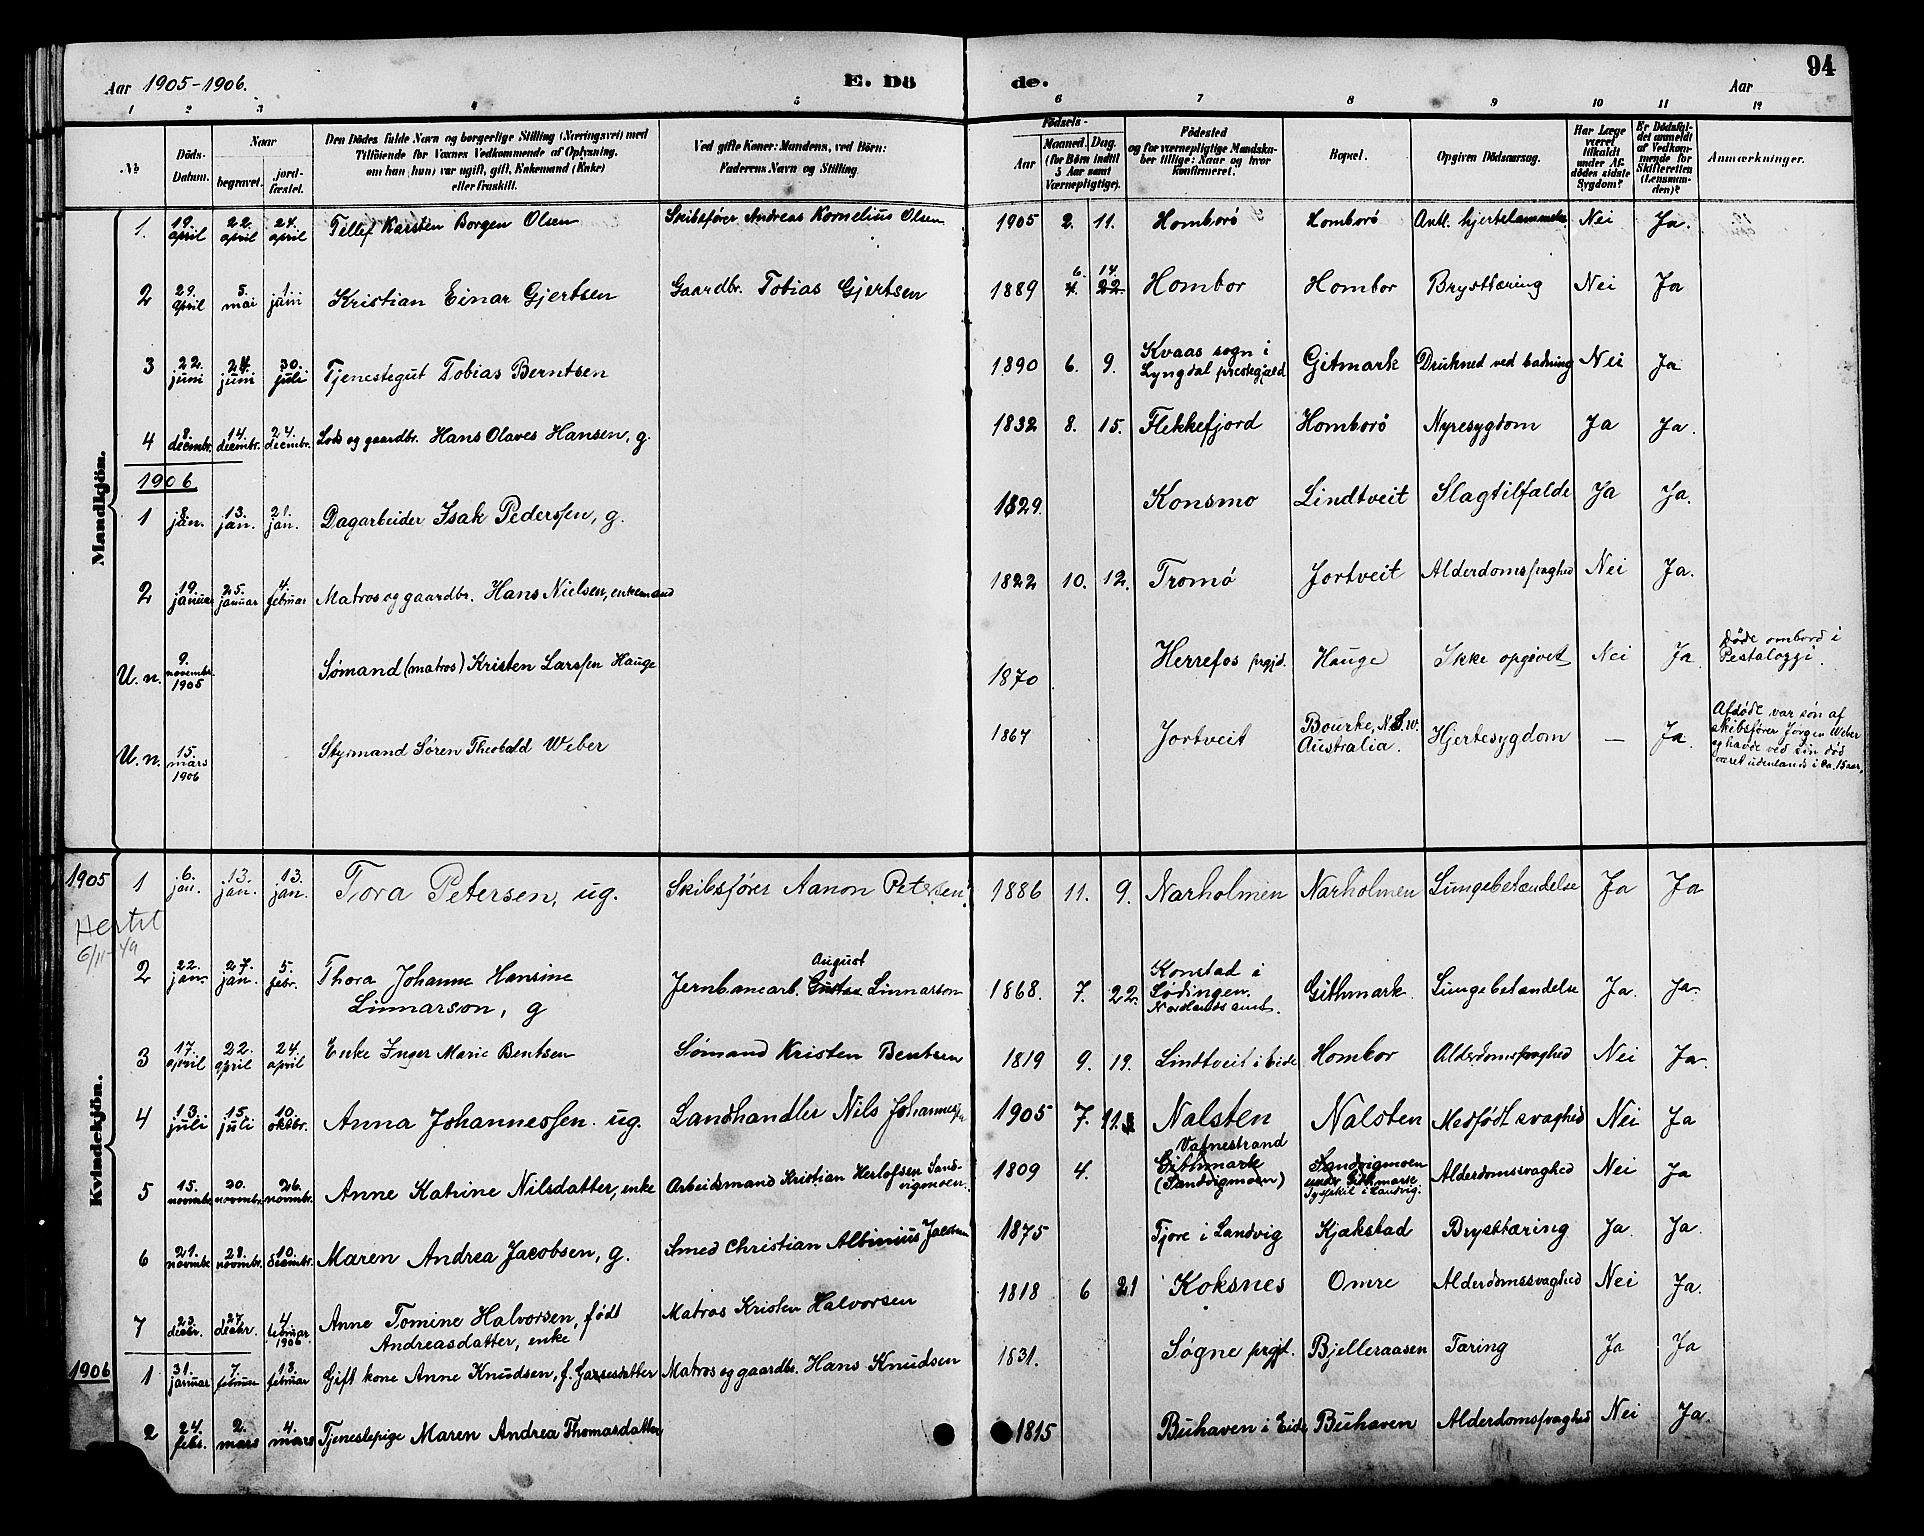 94
Aar 1905-1906. E. Dö de. Aar
1 2 3 4 5 6 7 8 9 10 11 12
No. Döds-Datum. Naar begravet. jordfæstet. Den Dödes fulde Navn og borgerlige Stilling (Næringsvei) med Tilföiende for Voxnes Vedkommende af Oplysning, om han (hun) var ugift, gift, Enkemand (Enke) eller fraskilt. Ved gifte Koner: Mandens, ved Börn: Faderens Navn og Stilling. Födsels- Aar Maaned. Dag. (for Börn indtil 5 Aar samt Værnepligtige). Födested og for værnepligtige Mandskaber tillige: Naar og hvor konfirmeret. Bopæl. Opgiven Dödsaarsag. Har Læge været tilkaldt under Afdödes sidste Sygdom? Er Dödsfaldet anmeldt af Vedkommende for Skifteretten (Lensmanden)? Anmærkninger.
Mandkjön.
1. 19. april 22. april 24. april Tellef Karsten Borgen Olsen Skibsfører Andreas Kornelius Olsen 1905 2. 11. Homborø Homborø Antl. hjertelammelse Nei Ja.
2 29. april 5. mai 1. juni Kristian Einar Gjertsen Gaardbr. Tobias Gjertsen 1889 6. 4. 14. 22. Hombor Hombor Brysttæring Nei Ja
3 22. juni 24. juni 30. juli Tjenestegut Tobias Berntsen 1890 6. 9. Kvaas sogn i Lyngdal prestegjæld Gitmark Drukned ved badning Nei Ja
4 8. decembr. 14. decembr. 24. decembr. Lods og gaardbr. Hans Olaves Hansen, g. 1832 8. 15. Flekkefjord Homborø Nyresygdom Ja Ja.
1906
1 8. jan. 13. jan. 21. jan. Dagarbeider Isak Pederssen, g. 1829. Konsmo Lindtveit Slagtilfælde Ja Ja.
2 19. januar 25. januar 4. februar Matros og gaardbr. Hans Nielsen, enkemand 1822 10. 12. Tromø Jortveit Alderdomssvaghed Nei Ja.
U. n. 9. novembr. 1905 Sømand (matros) Kristen Larssen Hauge 1870 Herrefos prgjd. Hauge Ikke opgivet Nei Ja Døde ombord i Pestalozzi.
U. n. 15. mars 1906 Styrmand Søren Theobald Weber 1867 Jortveit Bourke, N.S.W. Australia. Hjertesygdom — Ja. Afdøde var søn af skibsfører Jørgen Weber og havde ved sin død været udenlands i ca. 15 aar,
Kvindekjön.
1905 1 6. jan. 13. jan. 13. jan. Tora Petersen, ug. Skibsfører Aanon Petersen. 1886 11. 9. Narholmen Narholmen Lungebetændelse Ja Ja
6/11-49
2 22. jan. 27. jan. 5. febr. Thora Johanne Hansine Linnarson, g Jernbanearb. Gustav August Linnarson 1868. 7. 22. Konstad i Lødingen. Nordlands amt. Githmark. Lungebetændelse Ja. Ja.
3 17. april 22. april 24. april Enke Inger Marie Bentsen Sømand Kristen Bentsen 1819 9. 19. Lindtveit i Eide Hombor Alderdomssvaghed Nei Ja.
4 13. juli 15. juli 10. oktbr. Anna Johannessen. ug. Landhandler Nils Johannessen 1905 7. 11. Nalsten Nalsten Medfødt svaghed Nei Ja
5 15. novembr. 20. novembr. 26. novembr. Anne Katrine Nilsdatter, enke Arbeidsmand Kristian Herlofsen Sandvigmoen. 1809 4. Vafnestrand Githmark (Sandvigmoen) Sandvigmoen under Githmark i Landvig. Alderdomssvaghed Nei Ja
6 21. novembr. 28. novembr. 10. decembr. Maren Andrea Jacobsen, g. Smed Christian Albinius Jacobsen 1875 Fjore i Landvig Kjækstad Brysttæring Ja. Ja.
7 23. decbr. 27. decbr. 4. februar 1906 Anne Tomine Halvorsen, født Andreasdatter, enke Matros Kristen Halvorsen 1818 6 21 Koksnes Omre Alderdomssvaghed Nei Ja.
1906 1 31. januar 7. februar 18. februar Gift kone Anne Knudsen, f. Matros og gaardbr. Hans Knudsen 1831. Søgne prgjt. Bjelleraasen Tæring Ja Ja
2 24. febr. 2. mars 4. mars Tjenestepige Maren Andrea Thomasdatter 1815 Buhaven i Eide Buhaven Alderdomssvaghed Nei Ja.